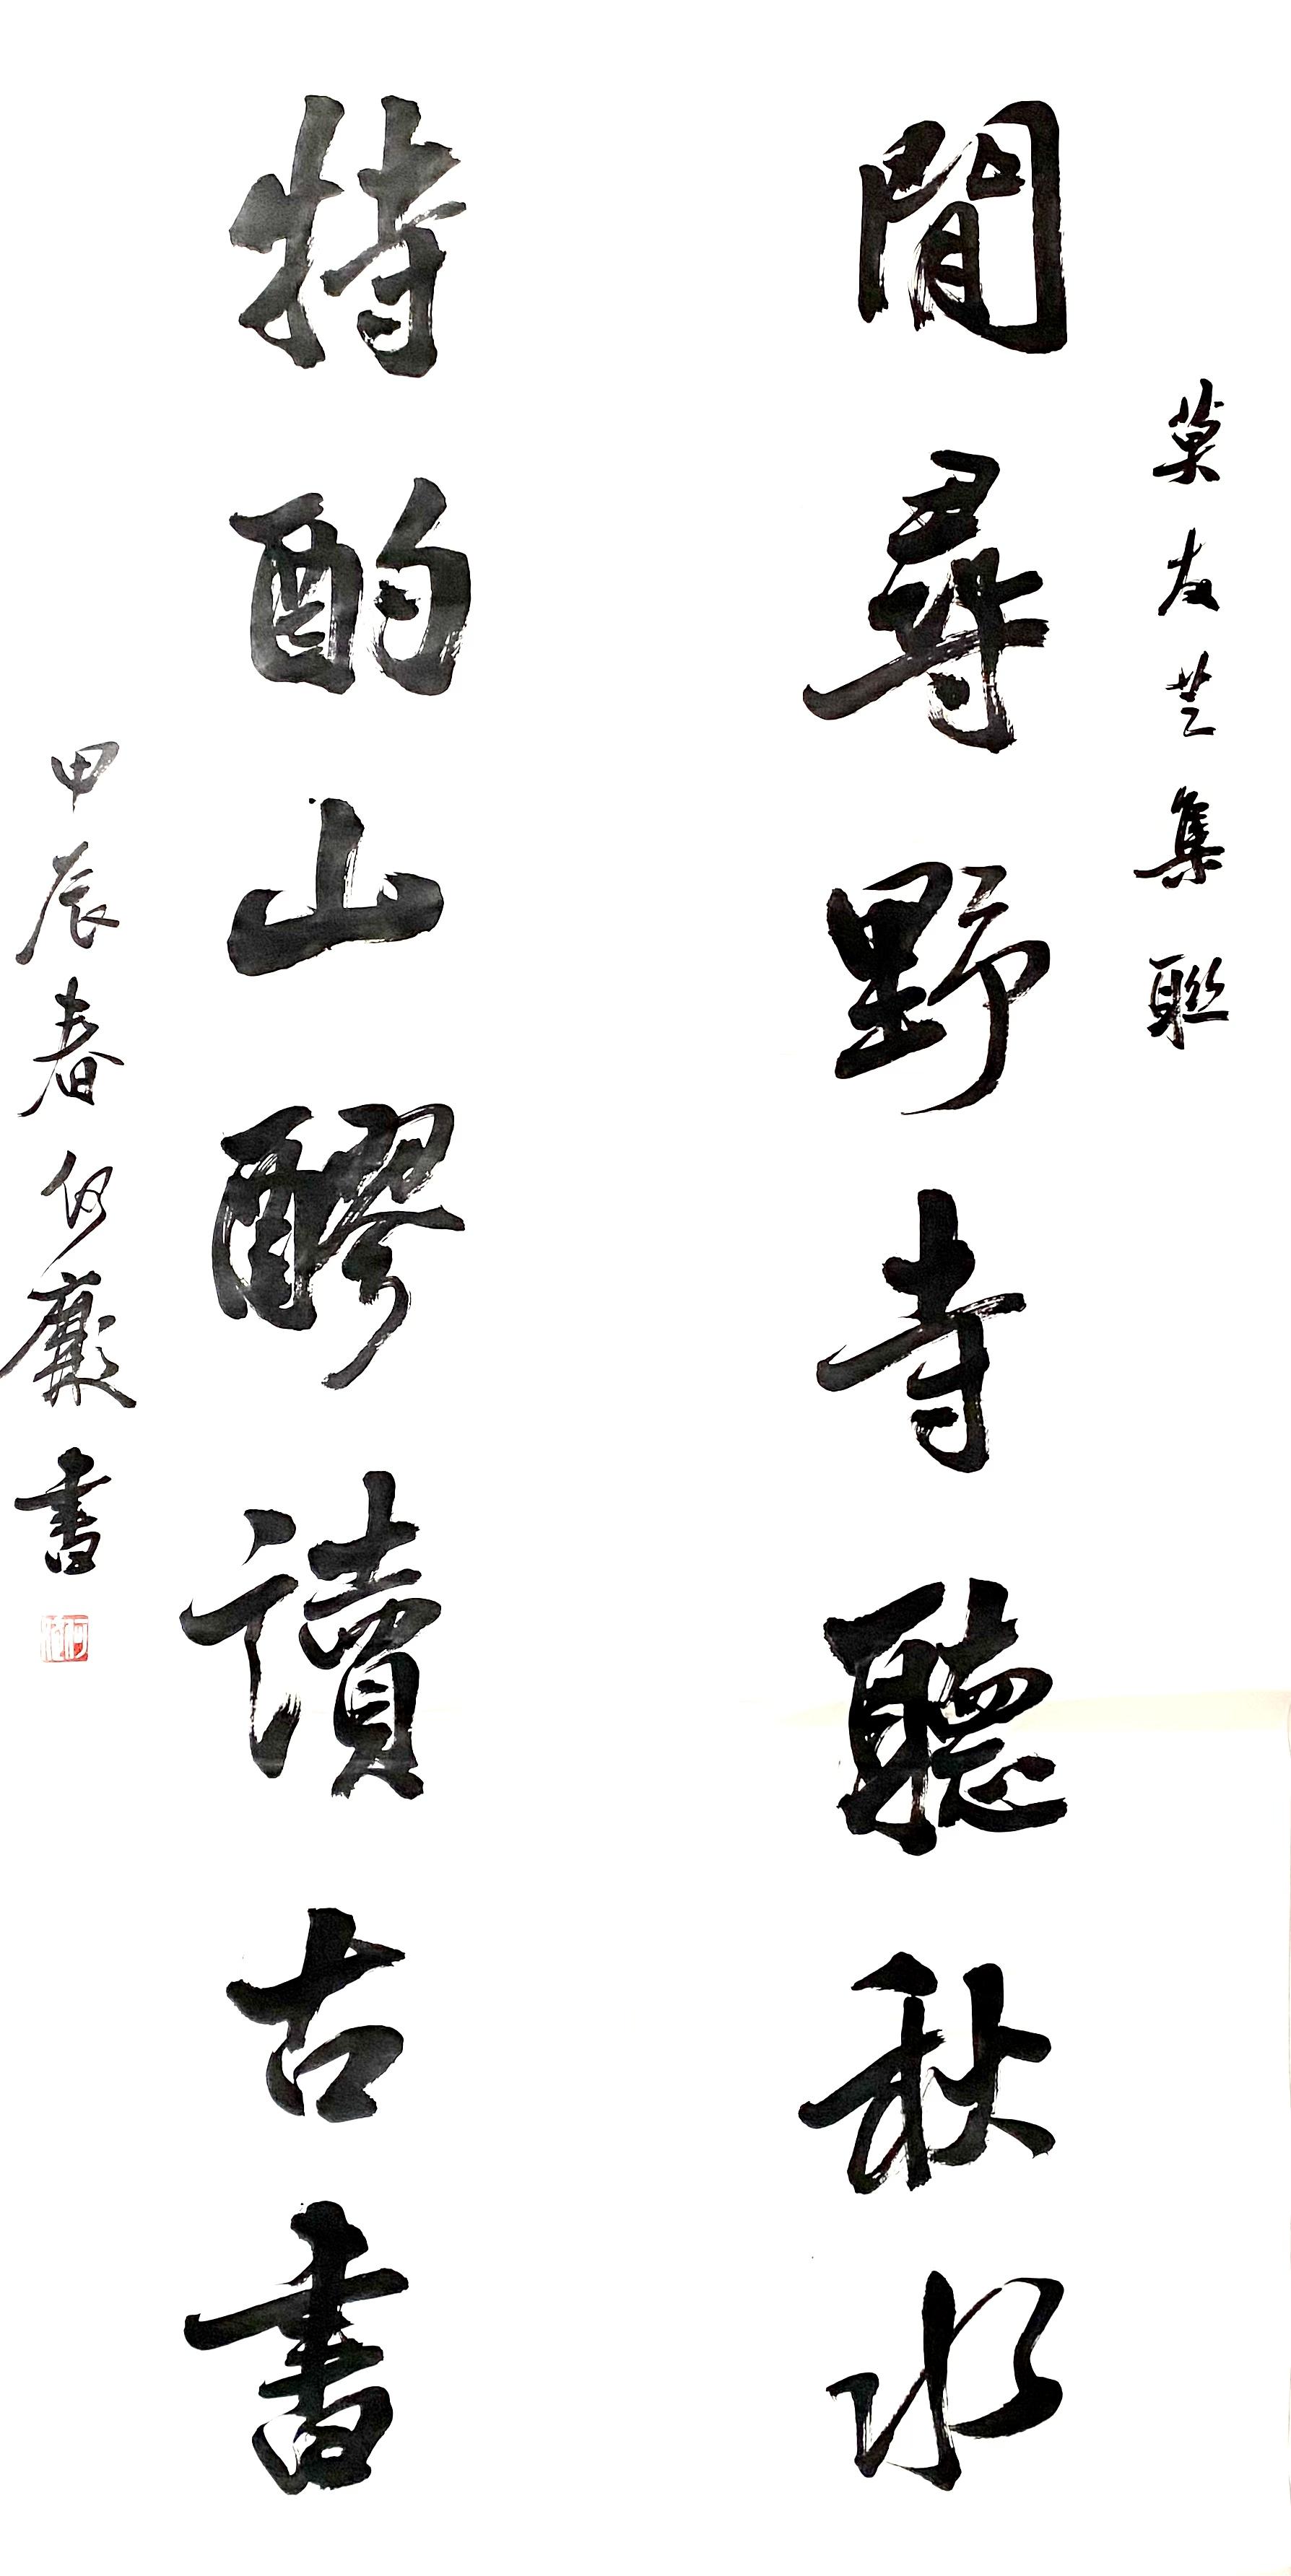 莫友芝集聯
閒尋野寺聽秋水
特酌山醪讀古書
甲辰春何廉書